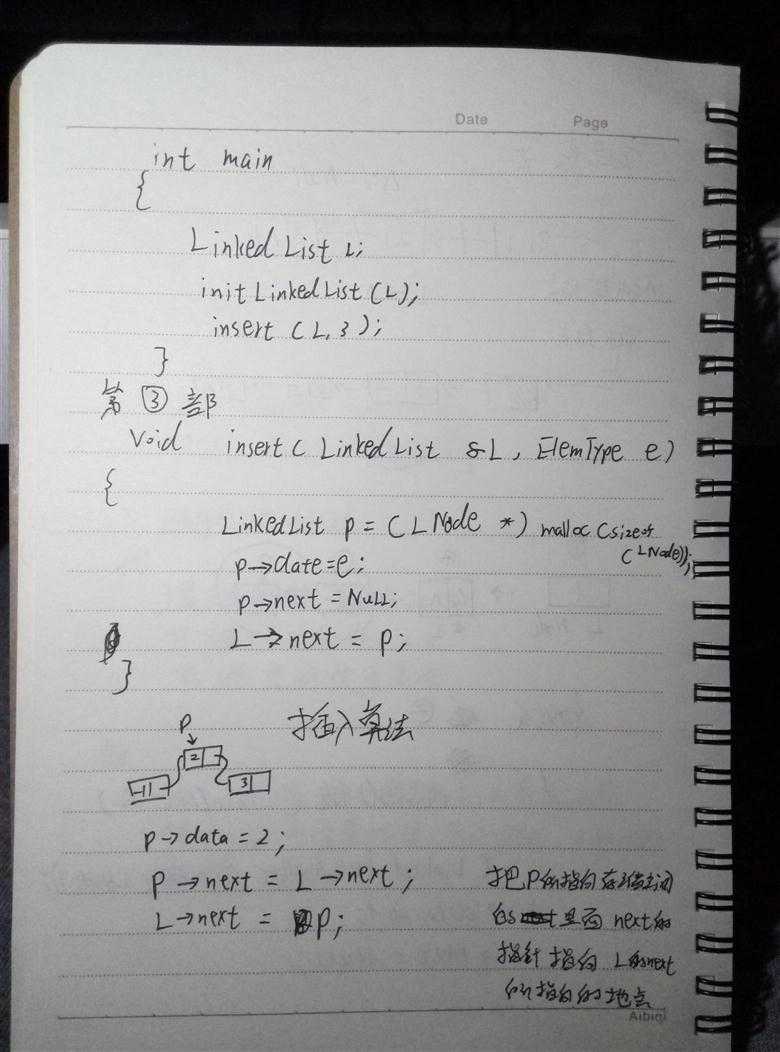 Date Page
int main
{
LinkedList L;
init LinkedList (L);
insert (L, 3);
}
第 ③ 部
Void insert ( LinkedList &L, ElemType e)
{
LinkedList p = (LNode *) malloc (sizeof
(LNode));
p→date=e;
p→next = NULL;
L→next = p;
}
插入算法
p
2
-1 3
p→data = 2;
p→next = L→next;
L→next = p;
把P所指向存储空间
的 里面 next的
指针 指向 L的next
所指向的地点
Aibiqi